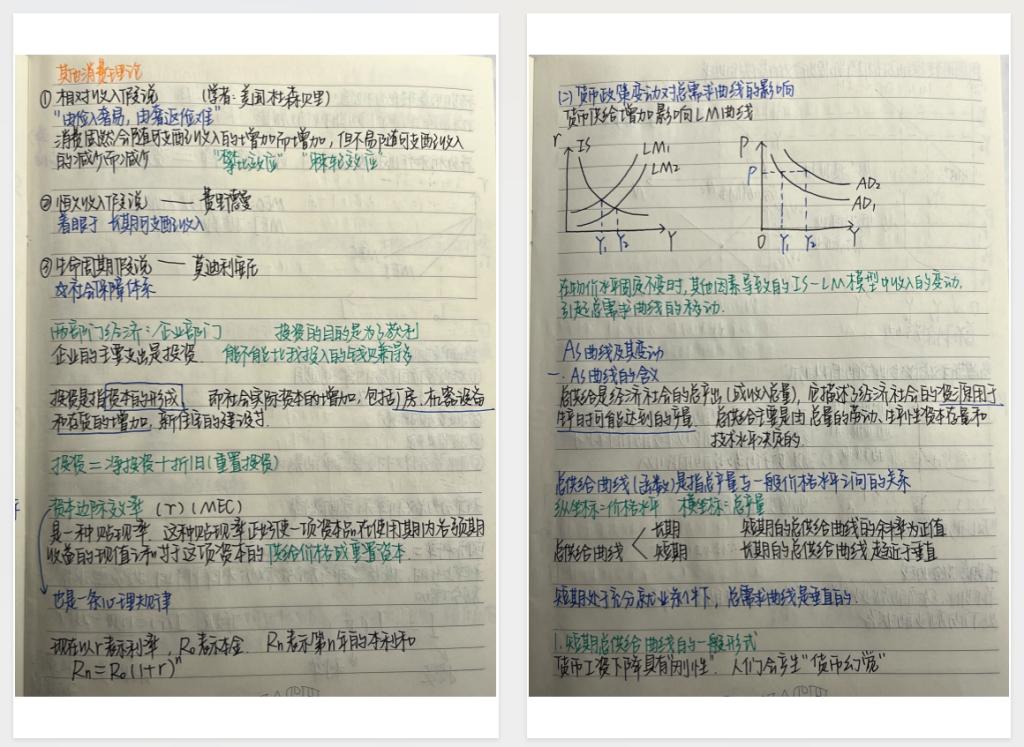 其他消费理论
①相对收入假说 (学者:美国杜森贝里)
"由俭入奢易,由奢返俭难"
消费固然会随可支配收入的增加而增加,但不易随可支配收入
的减少而减少 "攀比效应" "棘轮效应"
②恒久收入假说 —— 费里德曼
着眼于 长期可支配收入
③生命周期假说 —— 莫迪利安尼
社会保障体系
两部门经济:企业部门 投资的目的是为了获利
企业的主要支出是投资. 能不能比我投入的钱
投资是指资本的形成 即社会实际资本的增加,包括厂房、机器设备
和存货的增加,新住宅的建设等.
投资=净投资+折旧(重置投资)
资本边际效率 (r) (MEC)
是一种贴现率 这种贴现率正好使一项资本品在使用期内各项预期
收益的现值之和等于这项资本的供给价格或重置资本
也是一条心理大规律
现在以r表示利率,R₀表示本金. Rn表示第n年的本利和
Rn=R₀(1+r)ⁿ
(二)货币政策变动对总需求曲线的影响
货币供给增加影响LM曲线
r IS LM₁ P
LM₂ P AD₂
AD₁
Y₁ Y₂ Y O Y₁ Y₂ Y
在物价水平固定不变时,其他因素导致的IS-LM模型中收入的变动.
引起总需求曲线的移动.
AS曲线及其变动
一、AS曲线的含义
总供给是经济社会的总产出(或收入总量),它描述了经济社会的资源用于
生产时可能达到的产量. 总供给主要是由总量的劳动、生产性资本存量和
技术水平决定的.
总供给曲线(函数)是指总产量与一般价格水平之间的关系
纵坐标-价格水平 横坐标:总产量
长期 短期的总供给曲线的斜率为正值
总供给曲线 < 短期 长期的总供给曲线趋近于垂直
短期处于充分就业条件下,总需求曲线是垂直的.
1.短期总供给曲线的一般形式
货币工资下降具有"刚性". 人们会产生"货币幻觉"